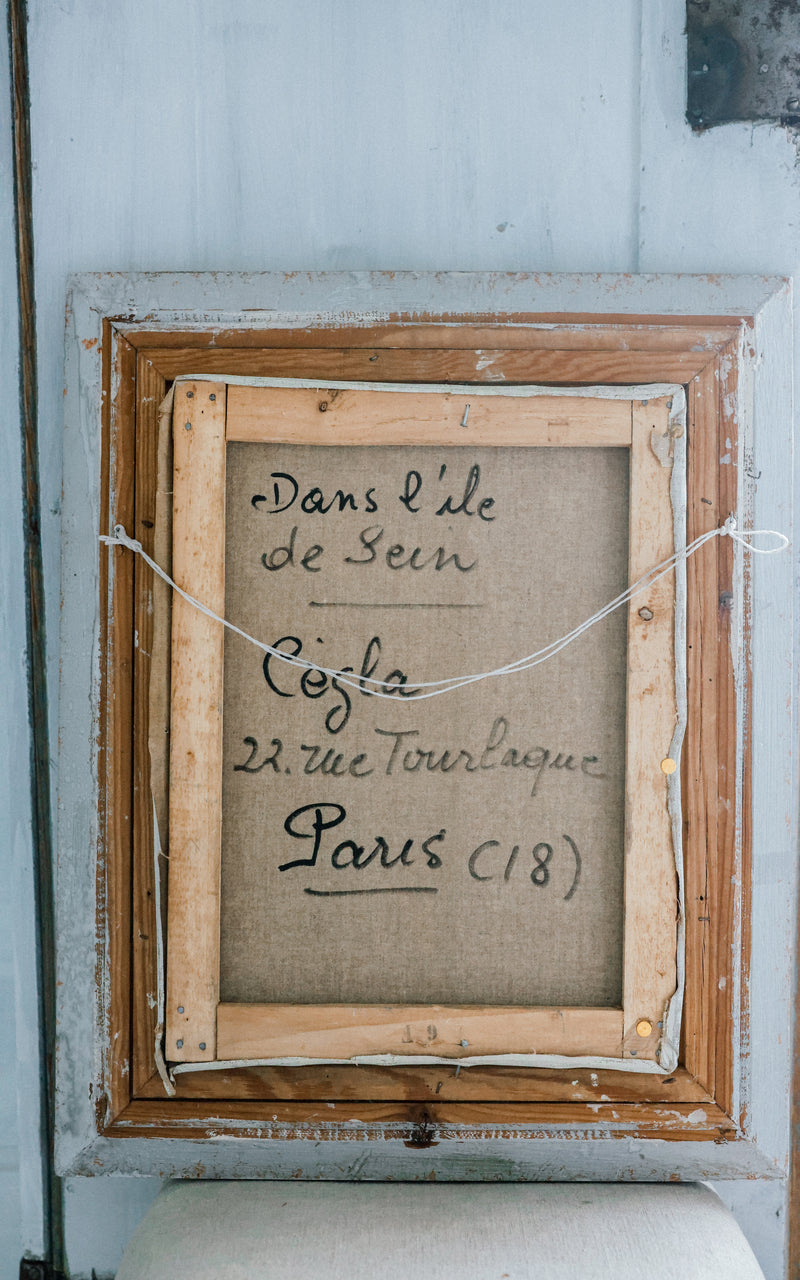 Dans l'ile
de Sein
Cégla
22. rue Tourlaque
Paris (18)
19